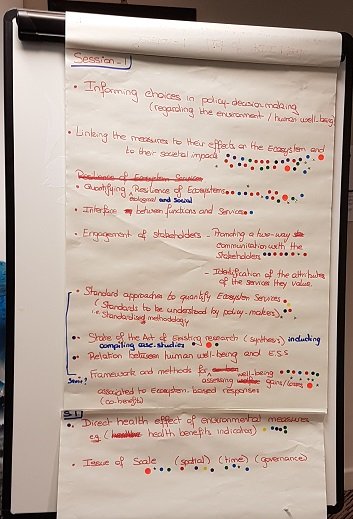 Session - 1
• Informing choices in policy-decision-making
(regarding the environment / human well-being)
• Linking the measures to their effects on the Ecosystem and
to their societal impacts
Resilience of Ecosystem Services
• Quantifying Resilience of Ecosystems
Ecological and Social
• Interface between functions and services
• Engagement of stakeholders - Promoting a two-way
communication with the
stakeholders
- Identification of the attributes
of the services they value.
• Standard approaches to quantify Ecosystem Services
(Standards to be understood by policy-makers)
i.e. Standardised methodology
• State of the Art of Existing research (synthesis) including
compiling case-studies
• Relation between human well-being and E.S.S
• Framework and methods for well-being
assessing gains/losses
associated to Ecosystem-based responses
(co-benefits)
S 1
• Direct health effect of environmental measures
e.g. (health benefits indicators)
• Issue of Scale (spatial) (time) (governance)